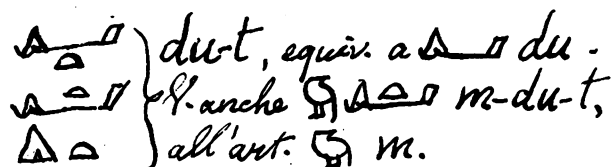 du-t, equiv. a du.
V. anche m-du-t,
all'art. m.